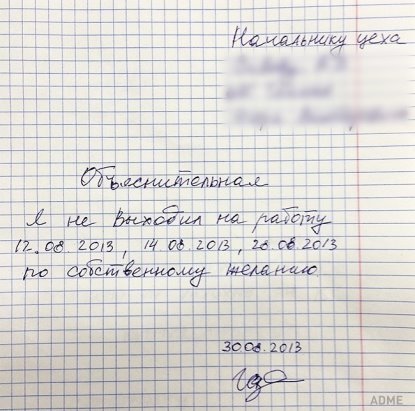 Начальнику цеха
Объяснительная
Я не выходил на работу
12.08.2013, 14.08.2013, 28.08.2013
по собственному желанию
30.08.2013
ADME